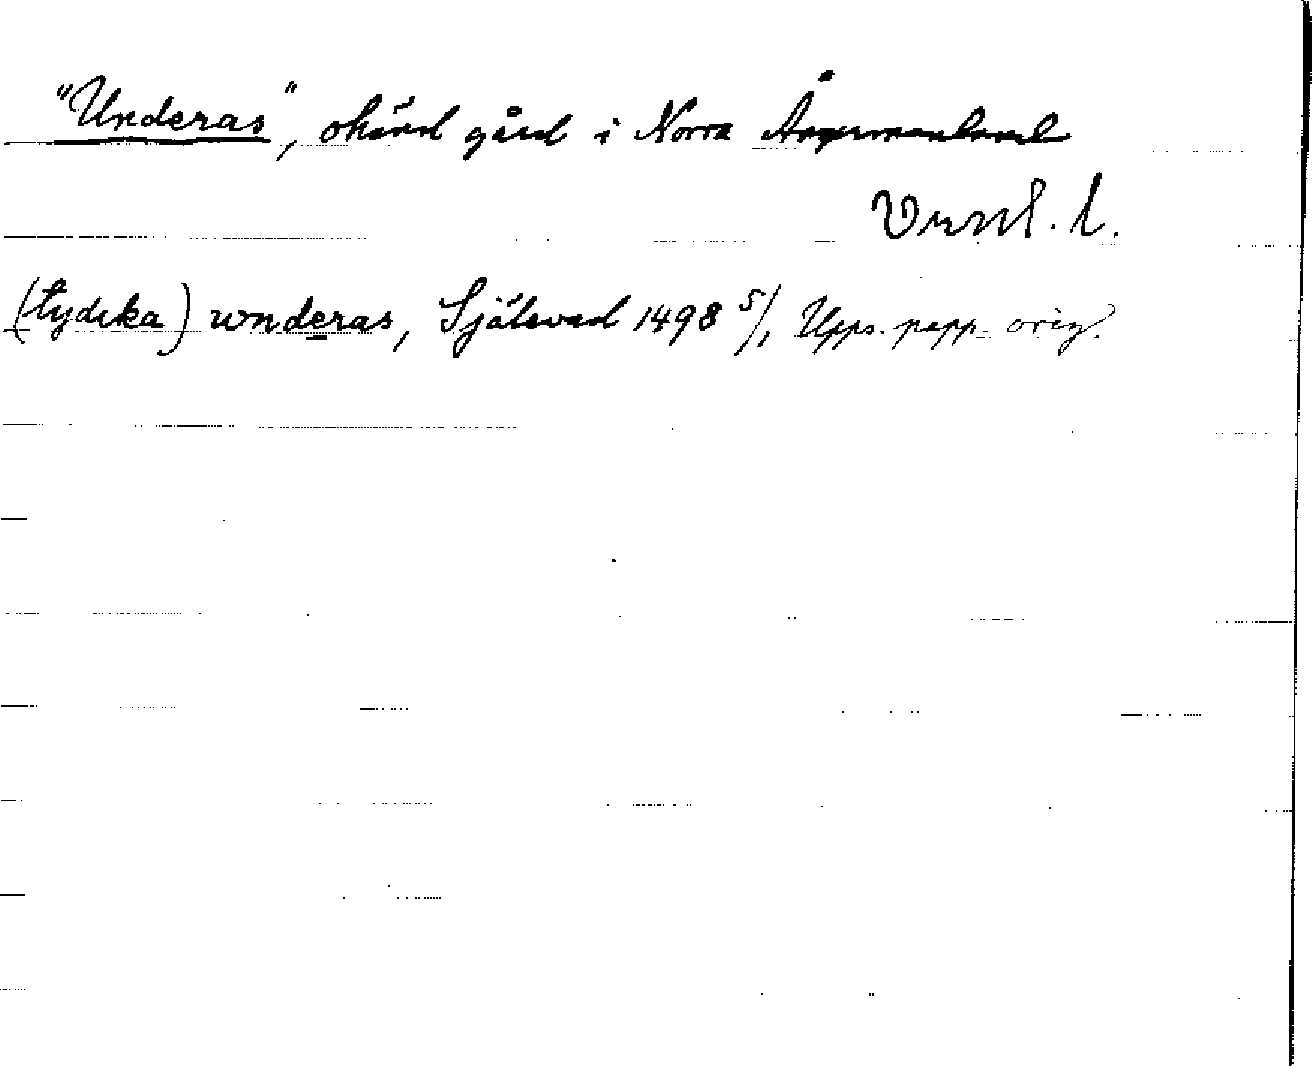 "Underas", okänd gård i Norra Ångermanland
Vrml. l.
(tydeka) wnderas, Själevad 1498 5/1 Upps. papp. orig.